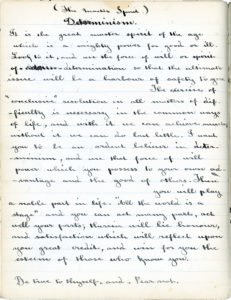 (The Master Spirit)
Determinism.
It is the great master spirit of the age
which is a mighty power for good or ill.
Look to it, and use the force of will or spirit
of determination so that the ultimate
issue will be a harbour of safety to you
The desire of
"conclusive" resolution in all matters of dif-
ficulty is necessary in the common ways
of life, and with it we can achieve much;
without it we can do but little. I want
you to be an ardent believer in deter-
minism, and use that force of will
power which you possess to your own ad-
vantage and the good of others. Then
you will play
a noble part in life. "All the world is a
stage" and you can act many parts, act
well your parts, therein will lie honour,
and satisfaction which will reflect upon
you great credit, and win for you the
esteem of those who know you.
Be true to thyself, and, Fear not.